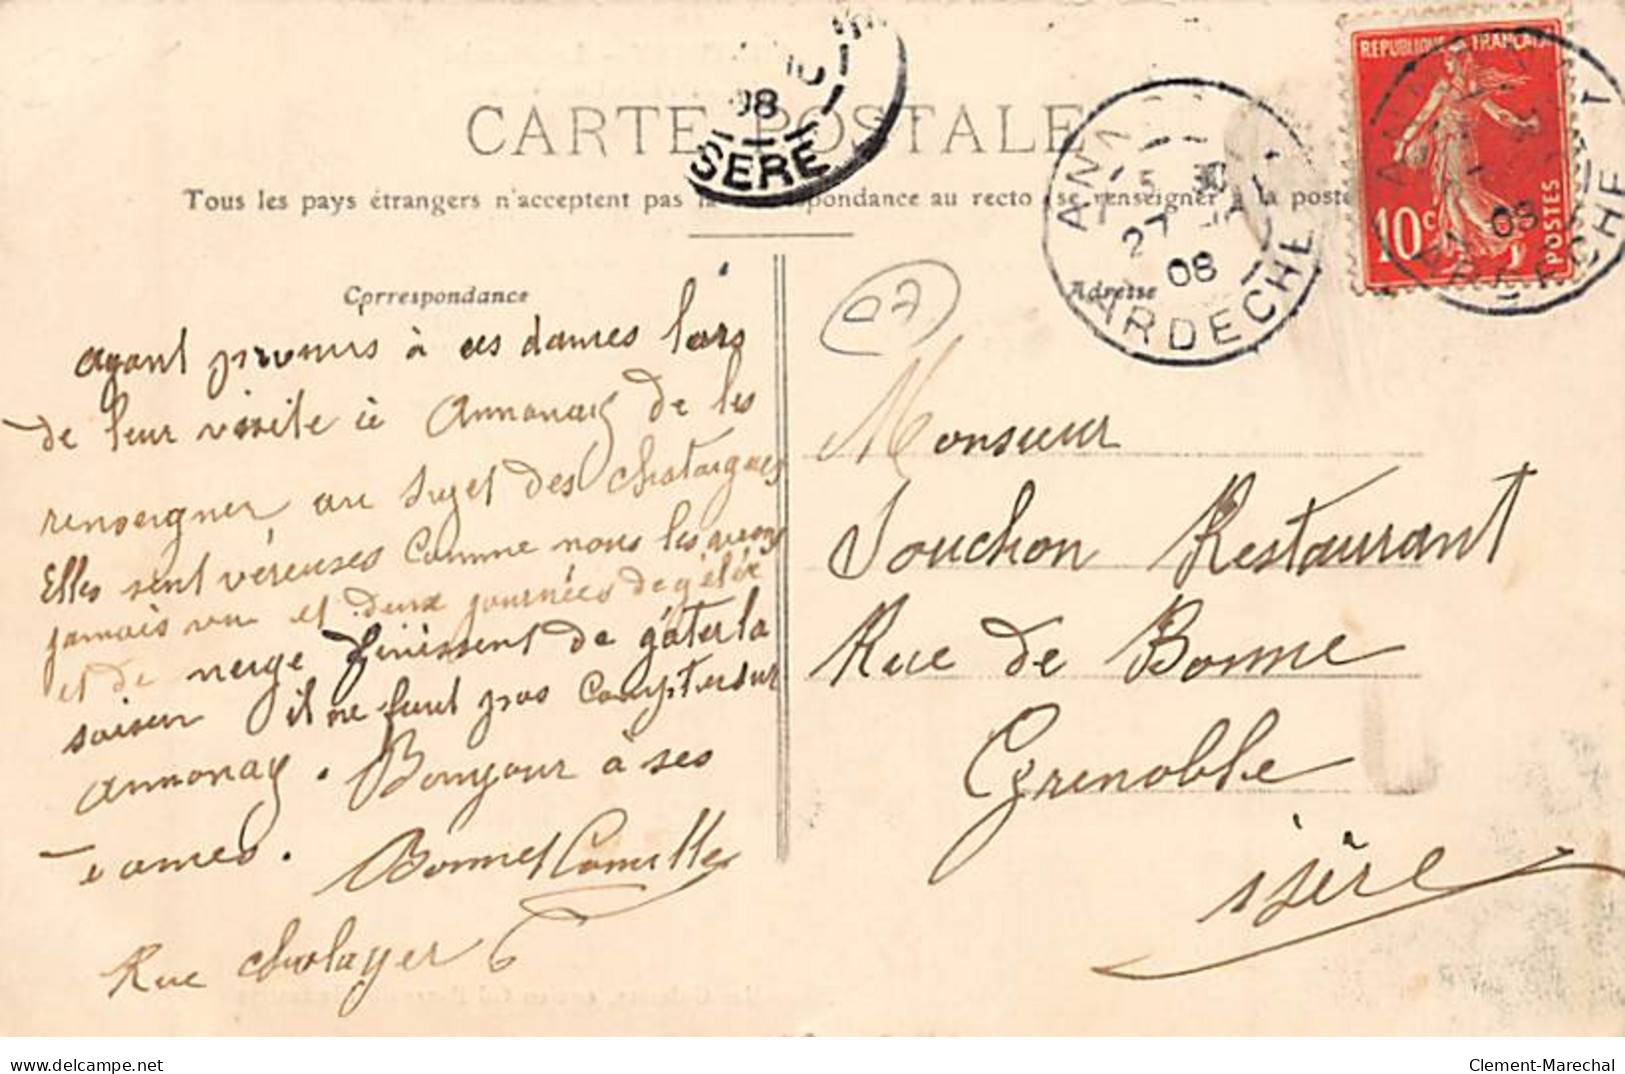 CARTE POSTALE
Tous les pays étrangers n'acceptent pas la correspondance au recto se renseigner à la poste
Correspondance
Adresse
ayant promis à ces dames lors
de leur visite à Annonay de les
renseigner au sujet des chataignes
Elles sont véreuses comme nous les avons
jamais vu et deux journées de gélée
et de neige finissent de gâter la
saison il ne faut pas compter sur
Annonay. Bonjour à ses
Dames. Bonnet Camille
Rue 6
07
Monsieur
Souchon Restaurant
Rue de Bonne
Grenoble
isère
ISERE
08
5 30
27
08
ARDECHE
REPUBLIQUE FRANÇAISE
10c
POSTES
08
ARDECHE
delcampe.net
Clement-Marechal